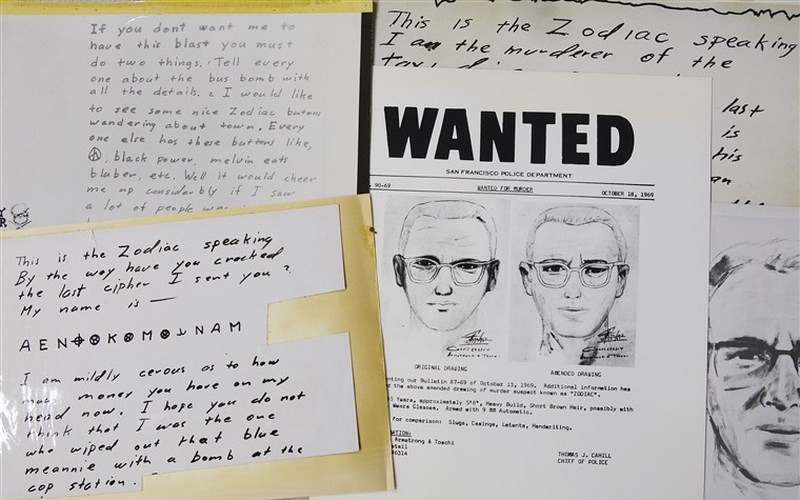 If you dont want me to
have this blast you must
do two things. Tell every
one about the bus bomb with
all the details. 2 I would like
to see some nice Zodiac butons
wandering about town. Every
one else has these buttons like,
☮, black power, melvin eats
bluber, etc. Well it would cheer
me up considerbly if I saw
a lot of people
This is the Zodiac speaking
By the way have you cracked
the last cipher I sent you?
My name is —
A E N ⌖ ⊗ K ⊗ M ⊗ ⅃ N A M
I am mildly cerous as to how
much money you have on my
head now. I hope you do not
think that I was the one
who wiped out that blue
meannie with a bomb at the
cop station.
This is the Zodiac speaking
I am the murderer of the
last
is
his
WANTED
SAN FRANCISCO POLICE DEPARTMENT
90-69 WANTED FOR MURDER OCTOBER 18, 1969
ORIGINAL DRAWING AMENDED DRAWING
our Bulletin 87-69 of October 13, 1969. Additional information has
the above amended drawing of murder suspect known as "ZODIAC".
Years, approximately 5'8", Heavy Build, Short Brown Hair, possibly with
Wears Glasses, Armed with 9 MM Automatic.
for comparison: Slugs, Casings, Latents, Handwriting.
Armstrong & Toschi
THOMAS J. CAHILL
CHIEF OF POLICE